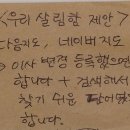 <우리 살림한 제안>
다음지도, 네이버지도
이사 변경 등록했으면
합니다 + 검색해서
찾기 쉬운
합니다.